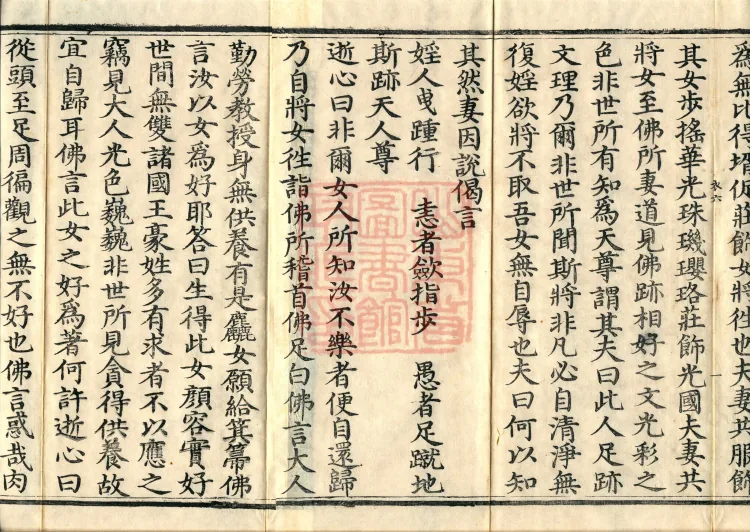 為無比得壻促莊飾女將徃也夫妻共服飾
其女步搖華光珠璣瓔珞莊飾光國夫妻共
將女至佛所妻道見佛跡相好之文光彩之
色非世所有知為天尊謂其夫曰此人足跡
文理乃爾非世所聞斯將非凡必自清淨無
復婬欲將不取吾女無自辱也夫曰何以知
其然妻因說偈言
婬人曳踵行 恚者斂指步 愚者足蹴地
斯跡天人尊
逝心曰非爾女人所知汝不樂者便自還歸
乃自將女徃詣佛所稽首佛足白佛言大人
勤勞教授身無供養有是麤女願給箕箒佛
言汝以女為好耶答曰生得此女顏容實好
世間無雙諸國王豪姓多有求者不以應之
竊見大人光色巍巍非世所見貪得供養故
宜自歸耳佛言此女之好為著何許逝心曰
從頭至足周徧觀之無不好也佛言惑哉肉